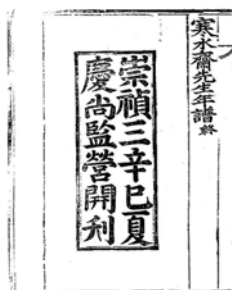 寒水齋先生年譜終
崇禎三辛巳夏
慶尚監營開刋